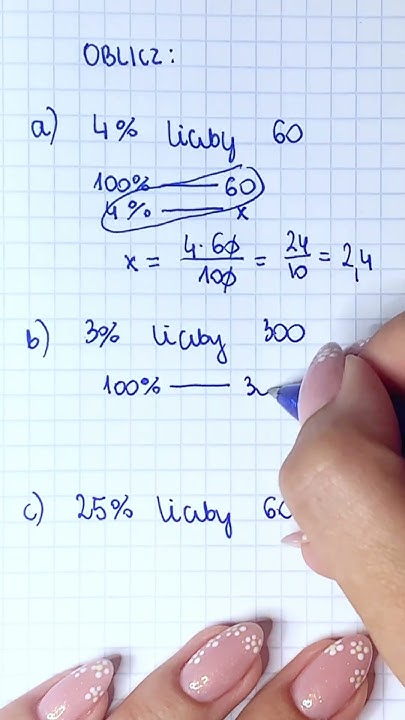 OBLICZ:
a) 4% liczby 60
100% — 60
4% — x
x = 4·60/100 = 24/10 = 2,4
b) 3% liczby 300
100% — 3
c) 25% liczby